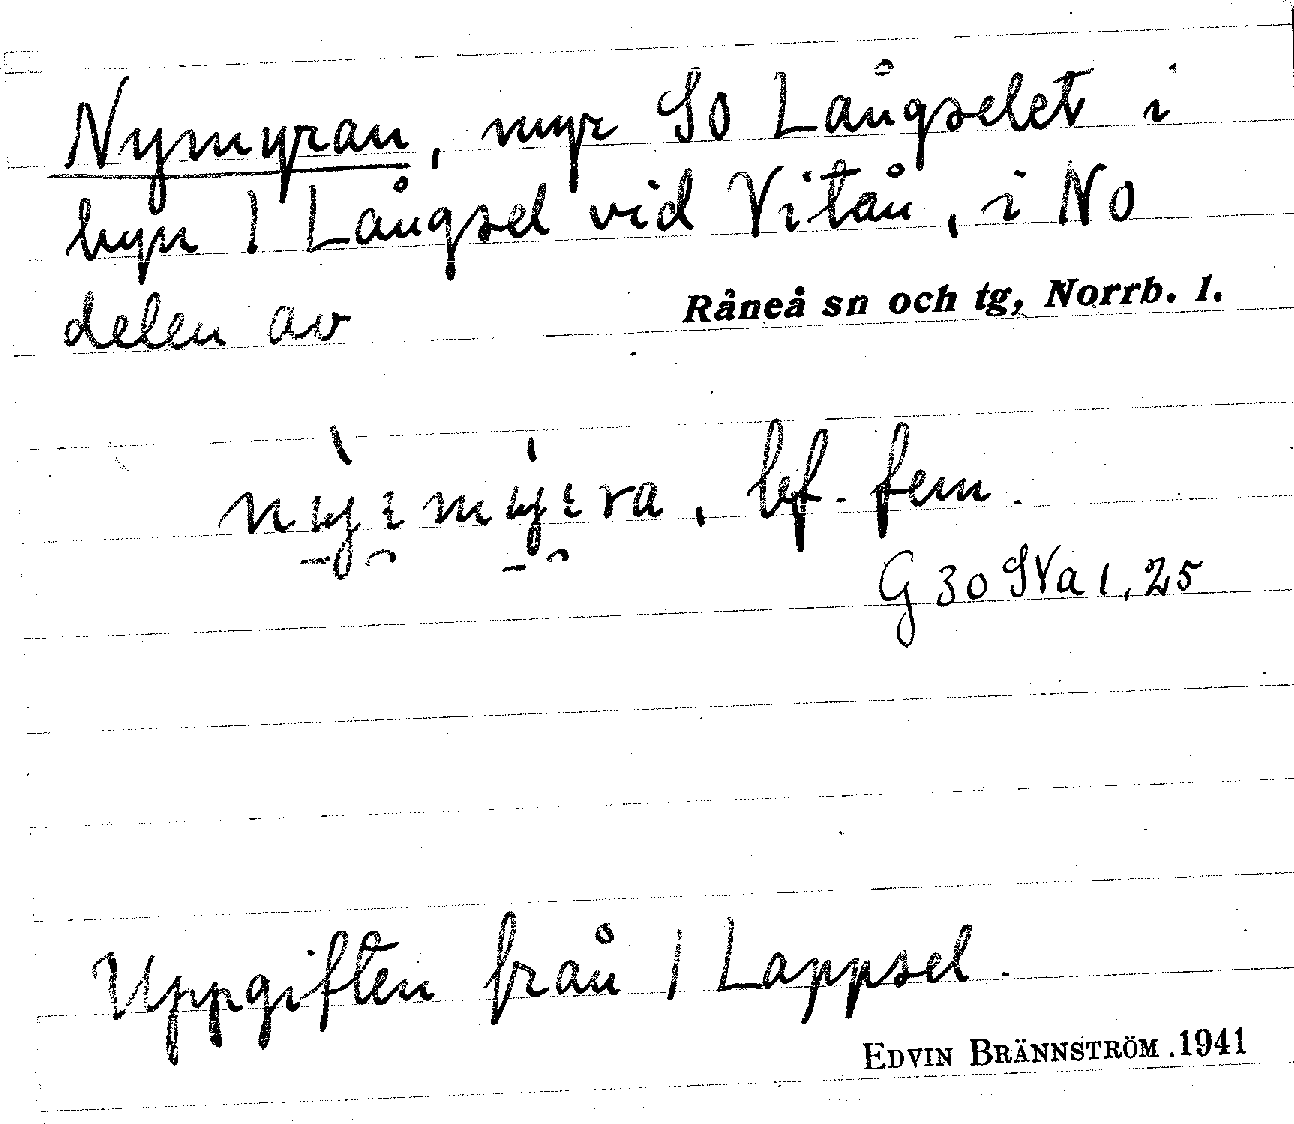 Nymyran, myr SO Långselet i
byn 1 Långsel vid Vitån, i NO
delen av Råneå sn och tg, Norrb. l.
bf. fem.
G 30 SVa 1, 25
Uppgiften från 1 Lappsel.
EDVIN BRÄNNSTRÖM. 1941